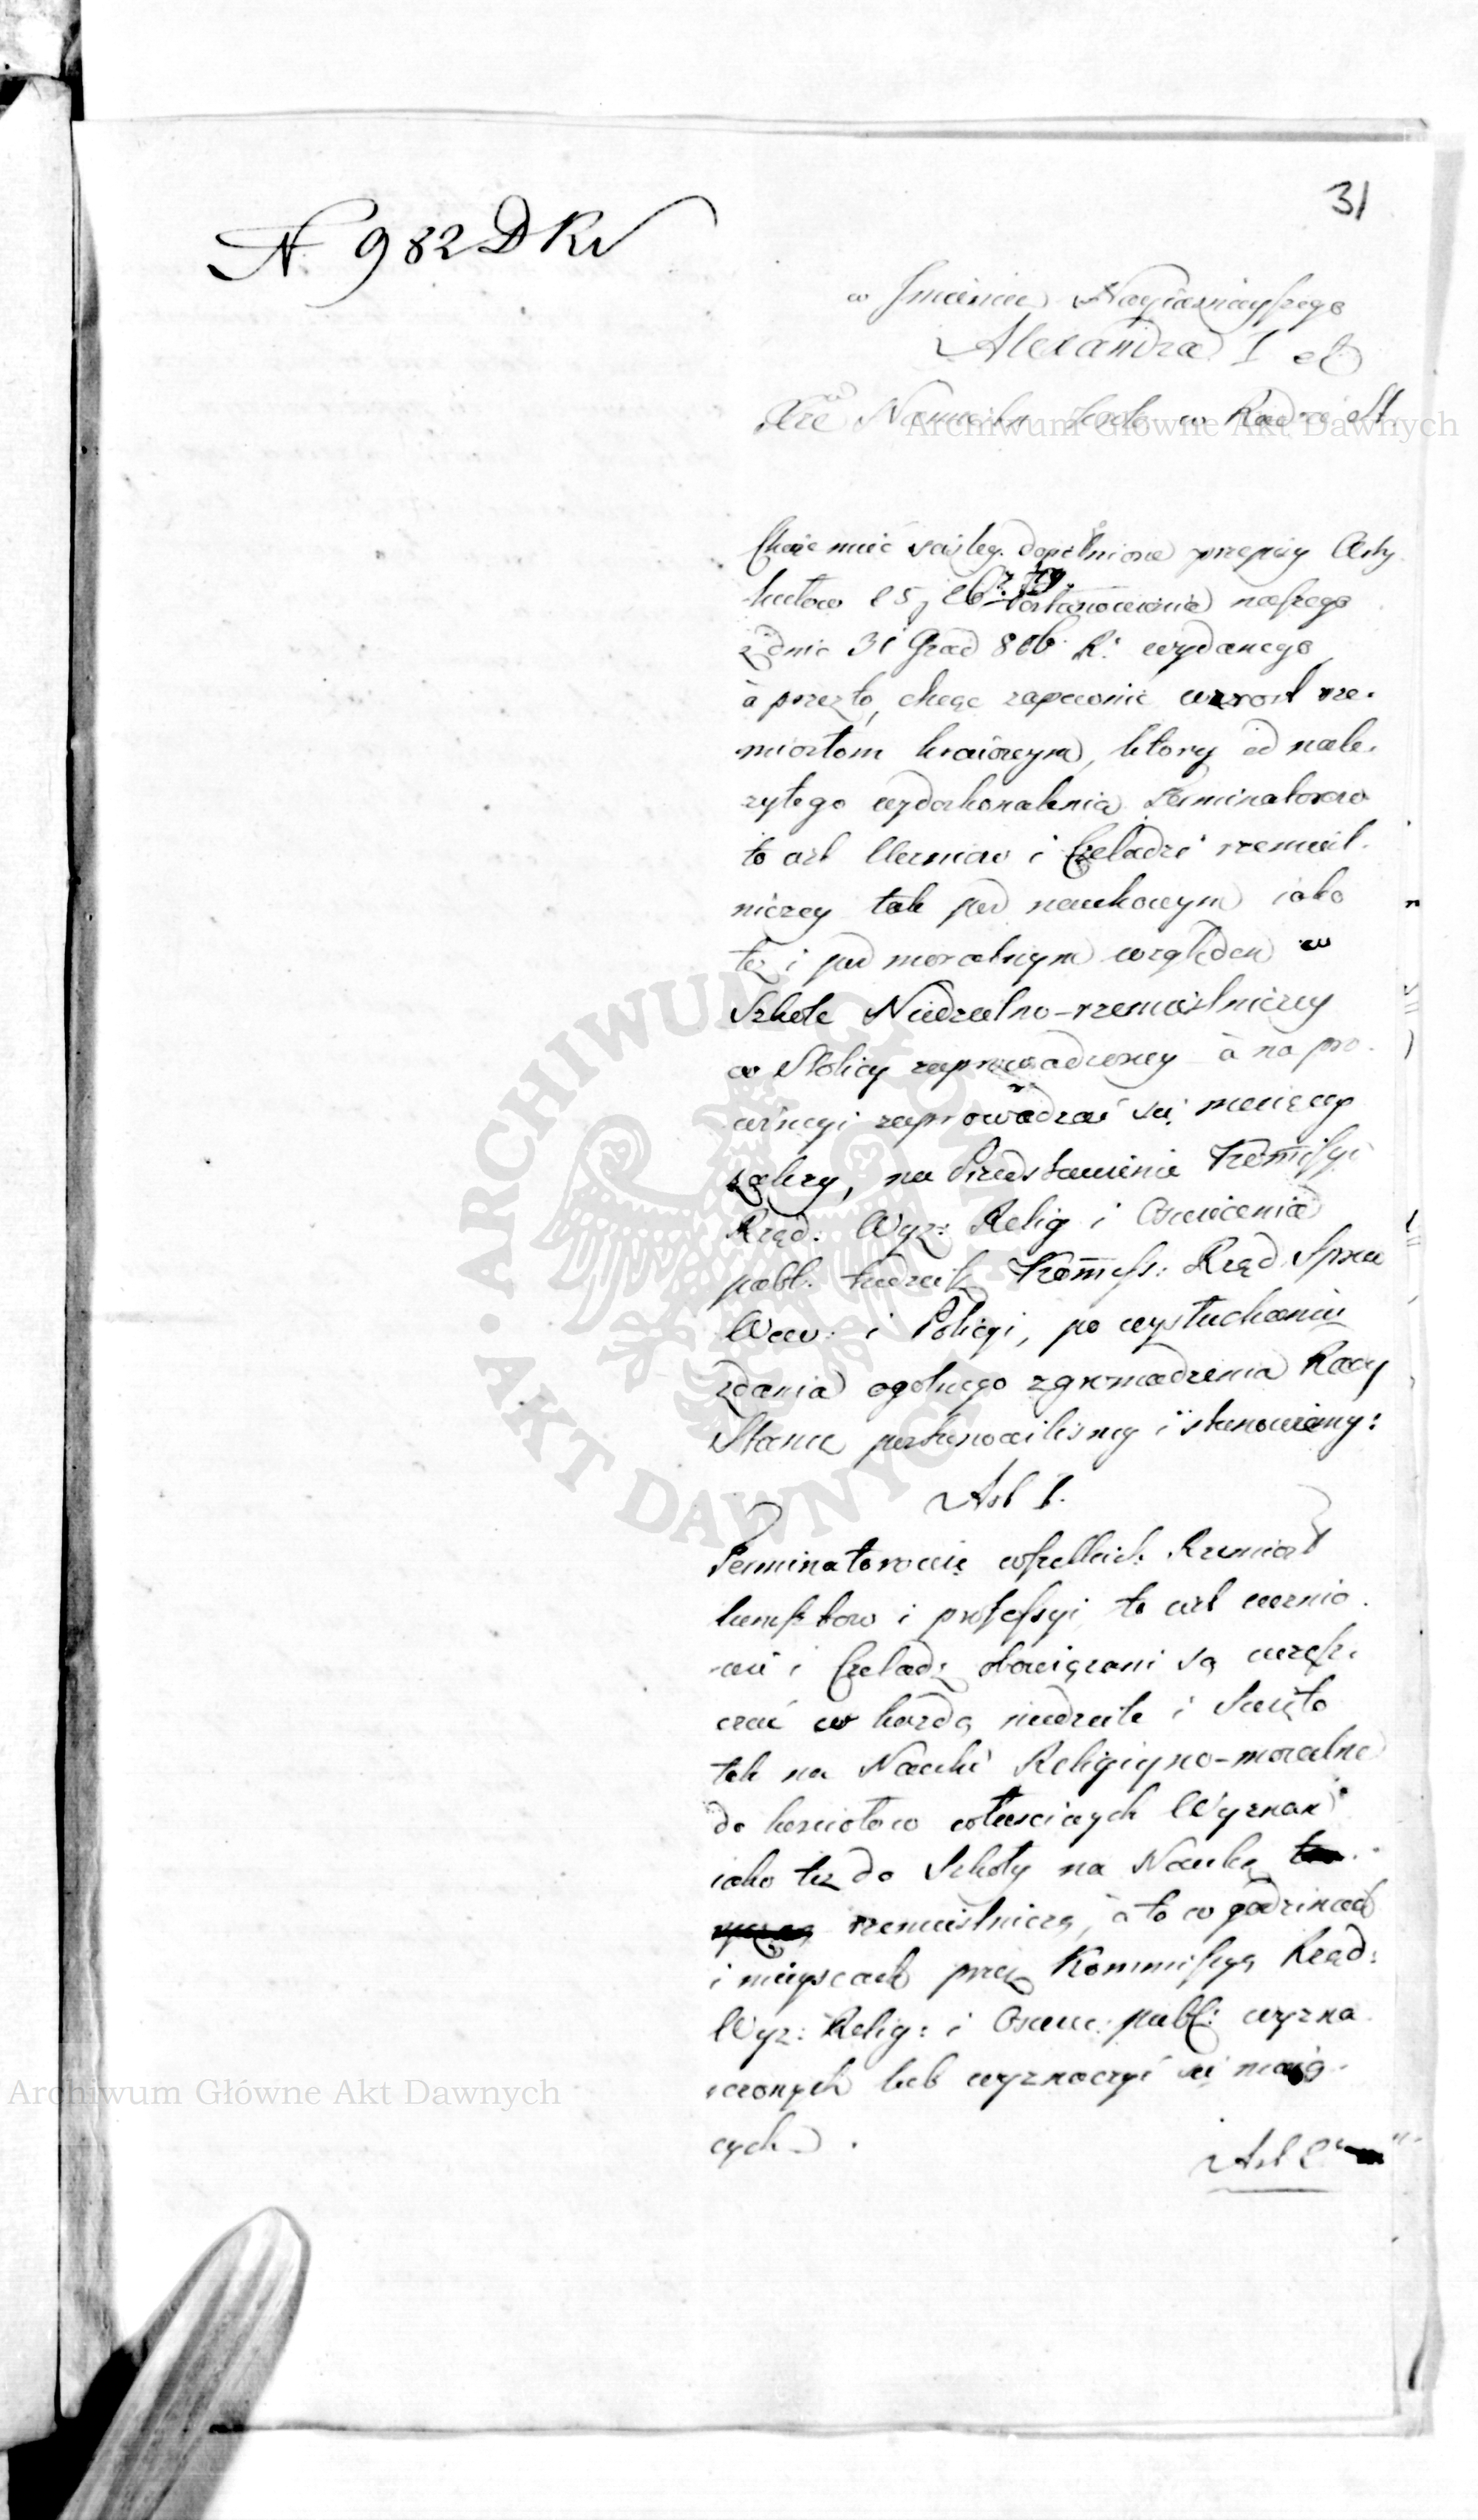 31
N 982 DKN
w Imieniu Nayiaśnieyszego
Alexandra I etc
Xże Namiestn Krole w Radzie St.
Chcąc mieć ściśley dopełnione przepisy Arty
kułow 25, 26 Postanowienia naszego
z dnia 31 Grud 816 R: wydanego
a przez to, chcąc zapewnić wzrost rze-
miosłom kraiowym, ktory od nale-
zytego wydoskonalenia Terminatorow
to iest Uczniow i Czeladzi rzemieśl-
niczey tak pod naukowym iako
tez i pod moralnym względem w
Szkole Niedzielno-rzemieślniczey
w Stolicy zaprowadzoney a na pro-
wincyi zaprowadzać się maiącey
zależy, na Przedstawienie Kommissyi
Rząd: Wyz: Relig i Oświecenia
publ. tudzież Kommiss: Rząd Spraw
Wew: i Policyi, po wysłuchaniu
zdania ogolnego zgromadzenia Rady
Stanu postanowiliśmy i stanowiemy:
Art 1.
Terminatorowie wszelkich Rzemiosł
kunsztow i professyi to iest ucznio-
wie i Czeladź obowiązani są uczęsz-
czać w każdą niedziele i Święto
tak na Nauki Religiyno-moralne
do kościołow właściwych Wyznań
iako też do Szkoły na Naukę
rzemieślniczą, a to w godzinach
i mieyscach przez Kommissyą Rząd:
Wyz: Relig: i Oświec: publ: wyzna-
czonych lub wyznaczyć się maią-
cych.
Art 2
Archiwum Główne Akt Dawnych
Archiwum Główne Akt Dawnych
ARCHIWUM GŁÓWNE · AKT DAWNYCH